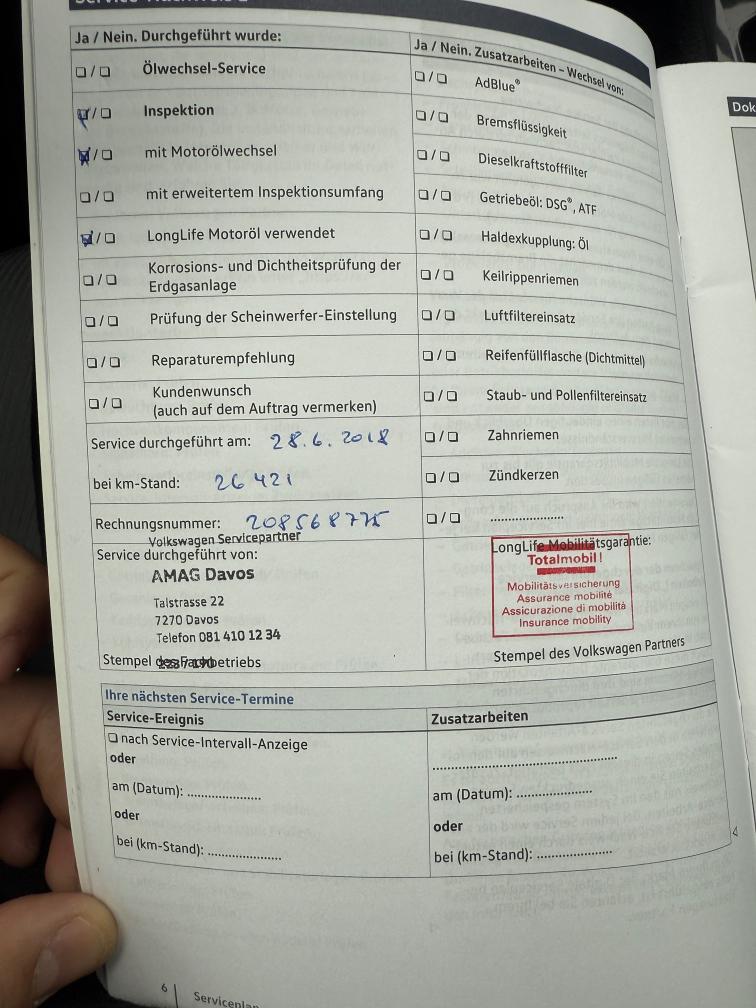 Ja / Nein. Durchgeführt wurde:
☐ / ☐ Ölwechsel-Service
☑ / ☐ Inspektion
☑ / ☐ mit Motorölwechsel
☐ / ☐ mit erweitertem Inspektionsumfang
☑ / ☐ LongLife Motoröl verwendet
☐ / ☐ Korrosions- und Dichtheitsprüfung der
Erdgasanlage
☐ / ☐ Prüfung der Scheinwerfer-Einstellung
☐ / ☐ Reparaturempfehlung
☐ / ☐ Kundenwunsch
(auch auf dem Auftrag vermerken)
Service durchgeführt am: 28.6.2018
bei km-Stand: 26 421
Rechnungsnummer: 208568775
Volkswagen Servicepartner
Service durchgeführt von:
AMAG Davos
Talstrasse 22
7270 Davos
Telefon 081 410 12 34
Stempel des Fachbetriebs
Ja / Nein. Zusatzarbeiten – Wechsel von:
☐ / ☐ AdBlue®
☐ / ☐ Bremsflüssigkeit
☐ / ☐ Dieselkraftstofffilter
☐ / ☐ Getriebeöl: DSG®, ATF
☐ / ☐ Haldexkupplung: Öl
☐ / ☐ Keilrippenriemen
☐ / ☐ Luftfiltereinsatz
☐ / ☐ Reifenfüllflasche (Dichtmittel)
☐ / ☐ Staub- und Pollenfiltereinsatz
☐ / ☐ Zahnriemen
☐ / ☐ Zündkerzen
☐ / ☐ ....................
LongLife Mobilitätsgarantie:
Totalmobil!
Mobilitätsversicherung
Assurance mobilité
Assicurazione di mobilità
Insurance mobility
Stempel des Volkswagen Partners
Ihre nächsten Service-Termine
Service-Ereignis
☐ nach Service-Intervall-Anzeige
oder
am (Datum): ....................
oder
bei (km-Stand): ....................
Zusatzarbeiten
..................................................
am (Datum): ....................
oder
bei (km-Stand): ....................
6 | Serviceplan
Dok